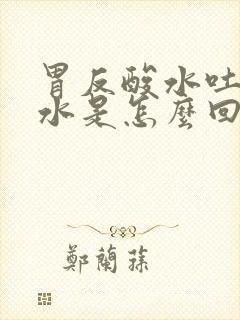 胃反酸水吐
水是怎麼回
鄭蘭蓀